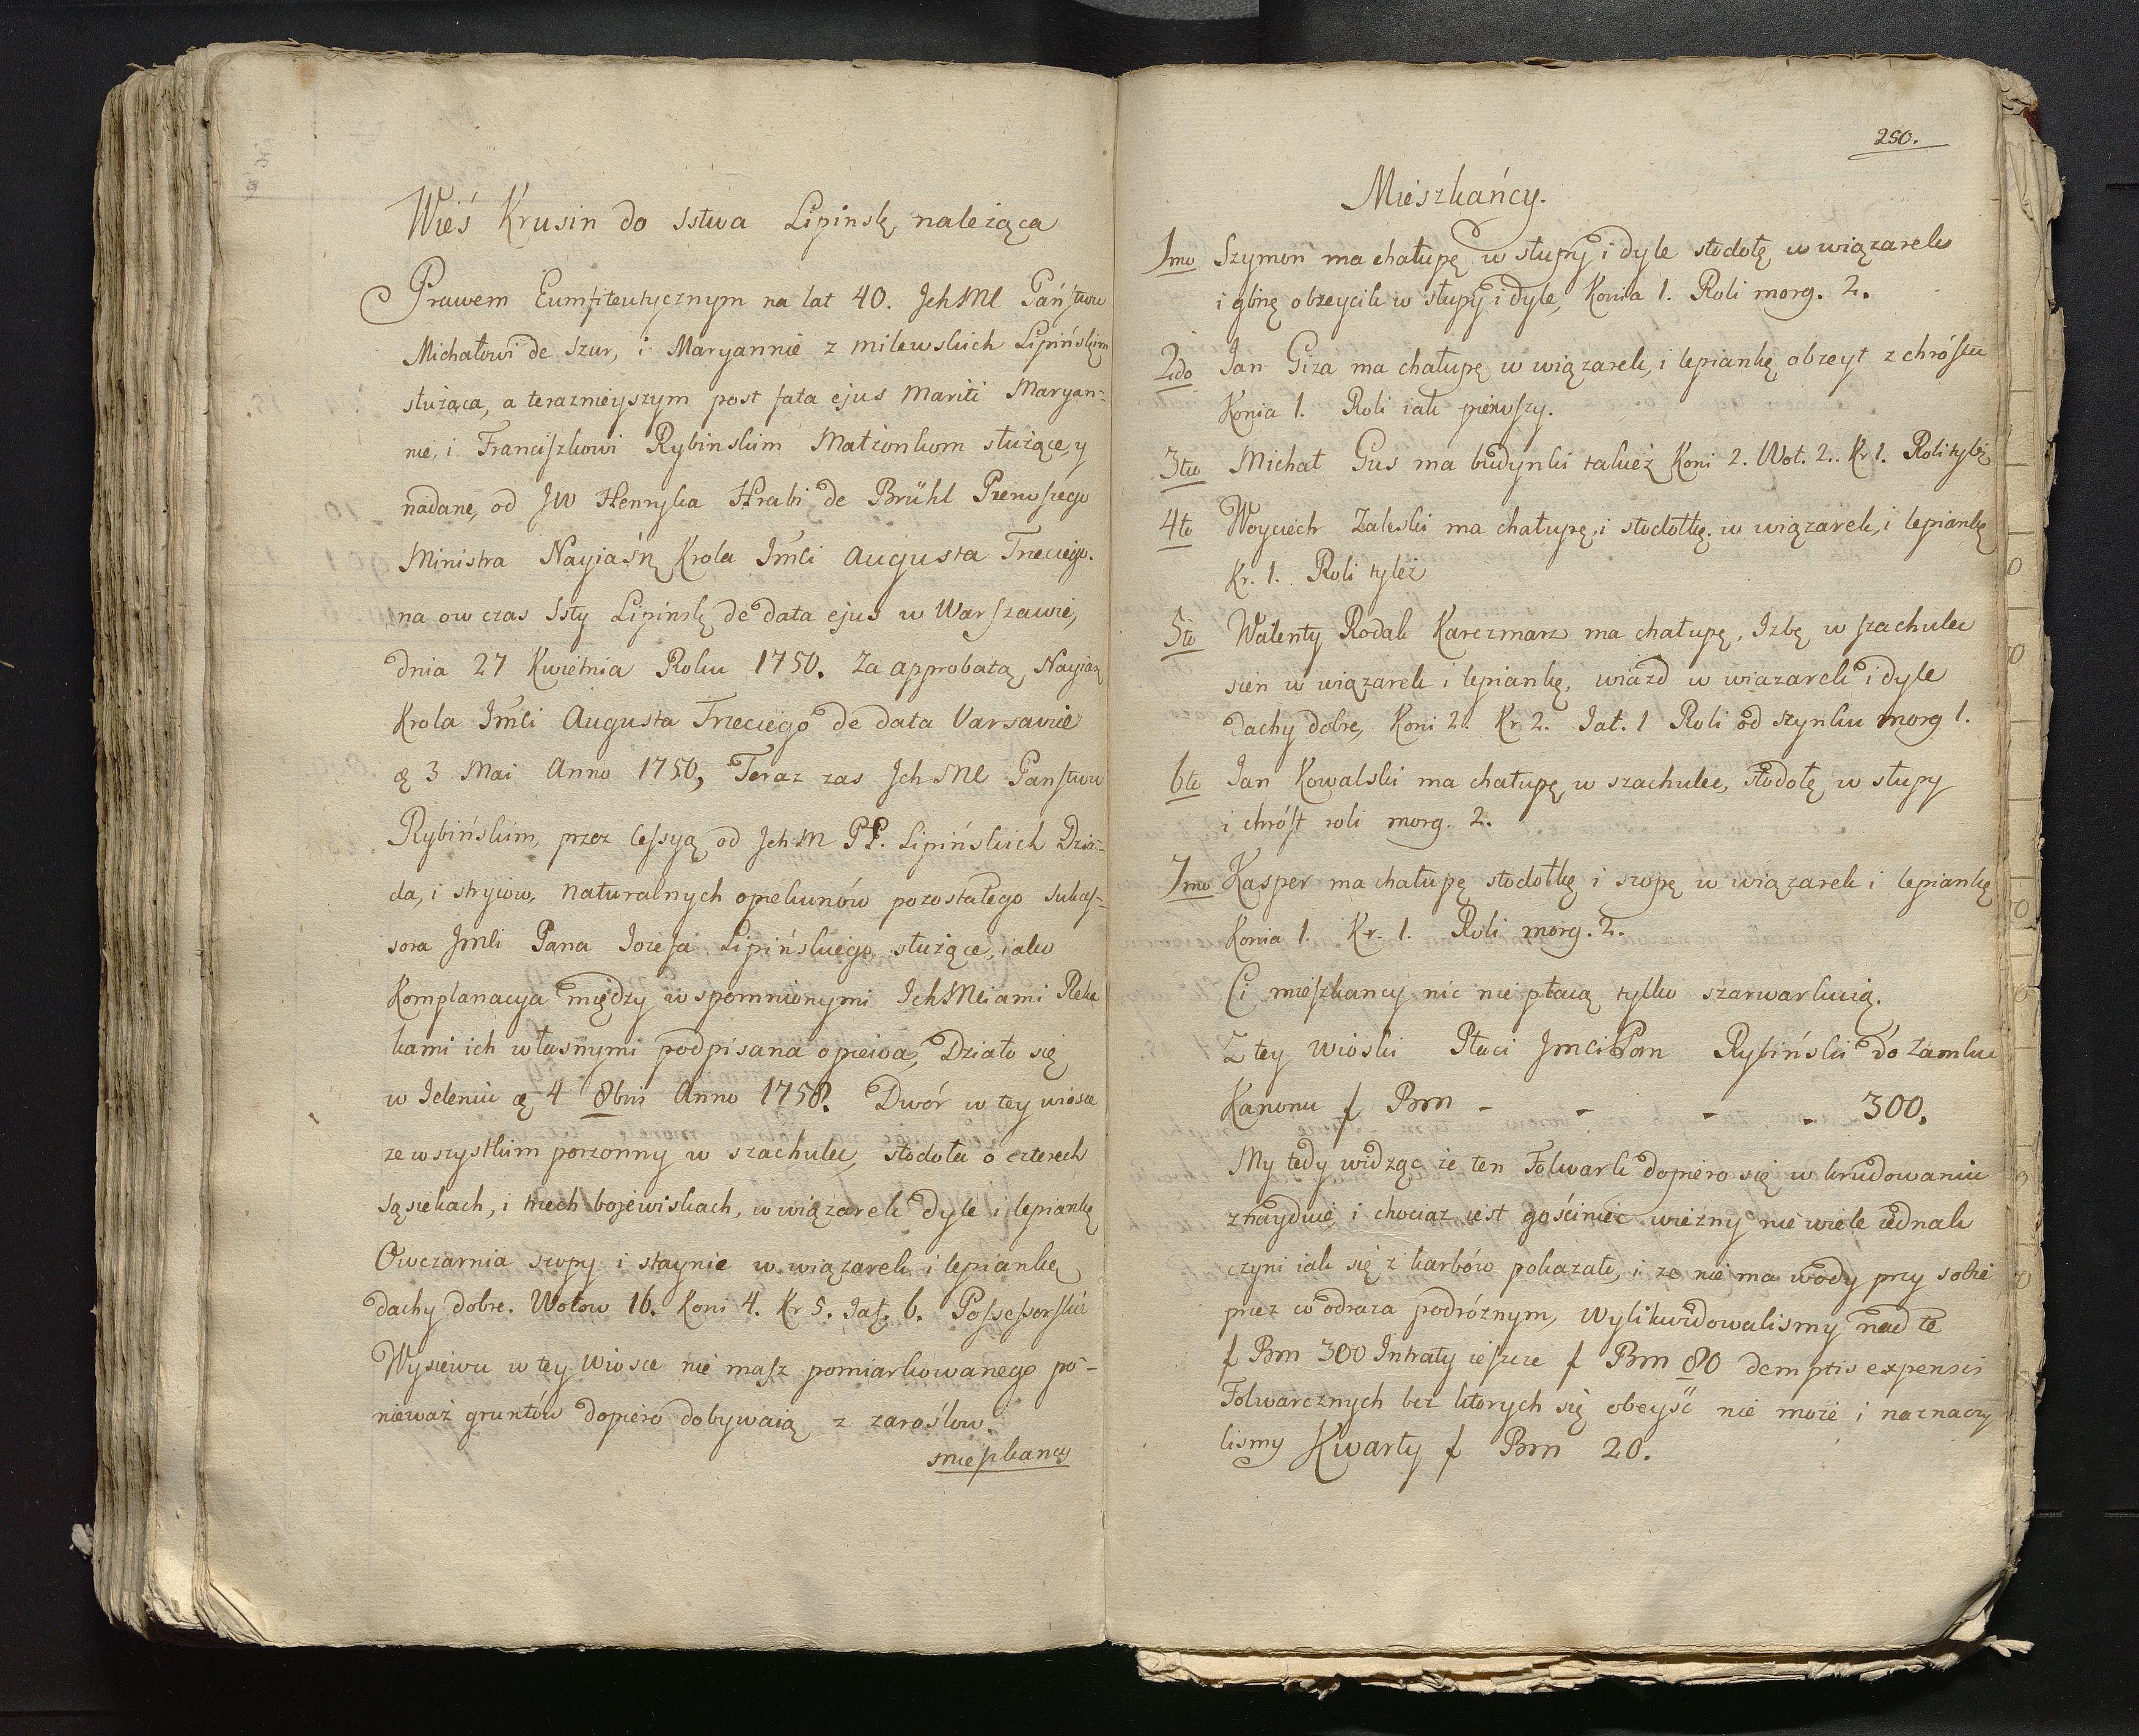 Wieś Krusin do Sstwa Lipinsk należąca
Prawem Eumfiteutycznym na lat 40. JchMC Państwu
Michałowi de Szur, i Maryannie z Milewskich Lipińskim
służąca, a teraznieyszym post fata ejus Mariti Maryan=
nie, i Franciszkowi Rybinskim Małżonkom służące, y
nadane, od JW Henryka Hrabi de Brühl Pierwszego
Ministra Nayiaśn Krola Jmći Augusta Trzeciego.
na ow czas Ssty Lipinsk de data ejus w Warszawie,
dnia 27 Kwietnia Roku 1750. Za approbatą Nayian
Krola Jmći Augusta Trzeciego de data Varsavie
3 Mai Anno 1750, Teraz zas JchMC Panstwu
Rybińskim, przez cessyą od JchM PP. Lipińskich Dzia=
da, i stryiow, naturalnych opiekunów pozostałego sukces=
sora Jmći Pana Jozefa Lipińskiego, służące, iako
Komplanacya między wspomnionymi JchMciami Ręka
kami ich własnymi podpisana opiewa, Działo się
w Jeleniu 4 8bris Anno 1758. Dwór w tey wiosce
ze wszystkim porzonny w szachulec, stodoła o czterech
sąsiekach, i trzech bojewiskach, w wiązarek dyle i lepiankę
Owczarnia szopy i staynie w wiązarek i lepiankę
dachy dobre. Wołow 16. Koni 4. Kr 5. Jał. 6. Possessorskie
Wysiewu w tey Wiosce nie masz pomiarkowanego po=
nieważ gruntów dopiero dobywaią z zaroślow.
mieszkancy
250.
Mieszkańcy.
1mo Szymon ma chałupę w słupy i dyle stodołę w wiązarek
i gbinę obzeycik w słupy i dyle, Konia 1. Roli morg. 2.
2do Jan Giza ma chałupę w wiązarek, i lepiankę obzeyt z chróstu
Konia 1. Roli iak pierwszy.
3tio Michał Gus ma budynki takież Koni 2. Woł. 2.. Kr 1. Roli tyleż
4to Woyciech Zaleski ma chałupę, i stodołkę w wiązarek, i lepiankę
Kr. 1. Roli tyleż
5to Walenty Rodak Karczmarz ma chałupę, Izbę w szachulec
sien w wiązarek i lepiankę, wiazd w wiazarek i dyle
dachy dobre, Koni 2. Kr 2. Jał. 1 Roli od szynku morg 1.
6to Jan Kowalski ma chałupę w szachulec, stodołę w słupy
i chróst roli morg. 2.
7mo Kasper ma chałupę stodołkę i szopę w wiązarek i lepiankę
Konia 1. Kr. 1. Roli morg. 2.
Ci mieszkancy nic nie płacą tylko szarwarkuią.
Z tey wioski Płaci Jmci Pan Rybiński do Zamku
Kanonu f Prm - - - - 300.
My tedy widząc że ten Folwark dopiero się w krudowaniu
znayduie, i chociaz iest gościniec wiezny nie wiele iednak
czyni iak się z karbów pokazało, i ze nie ma wody przy sobie
przez co odraza podróznym, wylikwidowalismy nad te
f Prm 300 Intraty ieszcze f Prm 80 demptis expensis
Folwarcznych bez ktorych się obeyść nie może i naznaczy
lismy Kwarty f Prm 20.